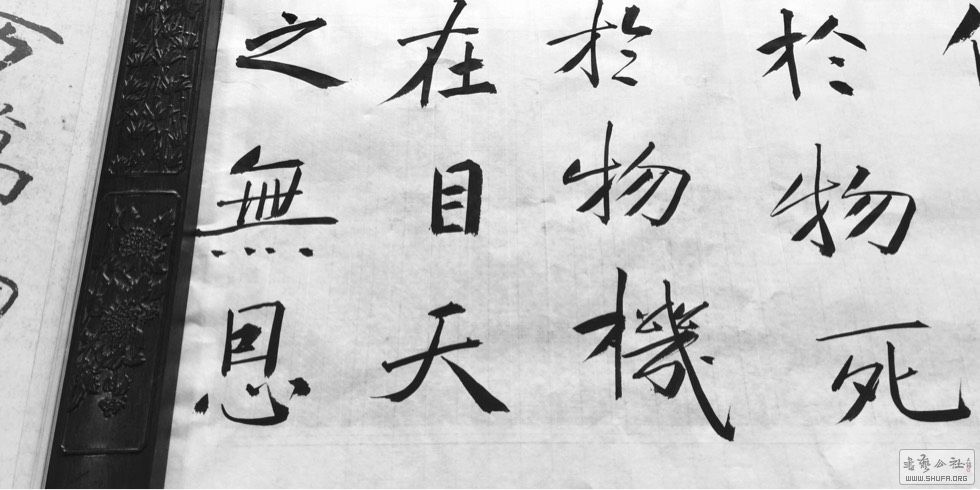 於物死
於物機
在目天
之無恩
書藝公社
WWW.SHUFA.ORG